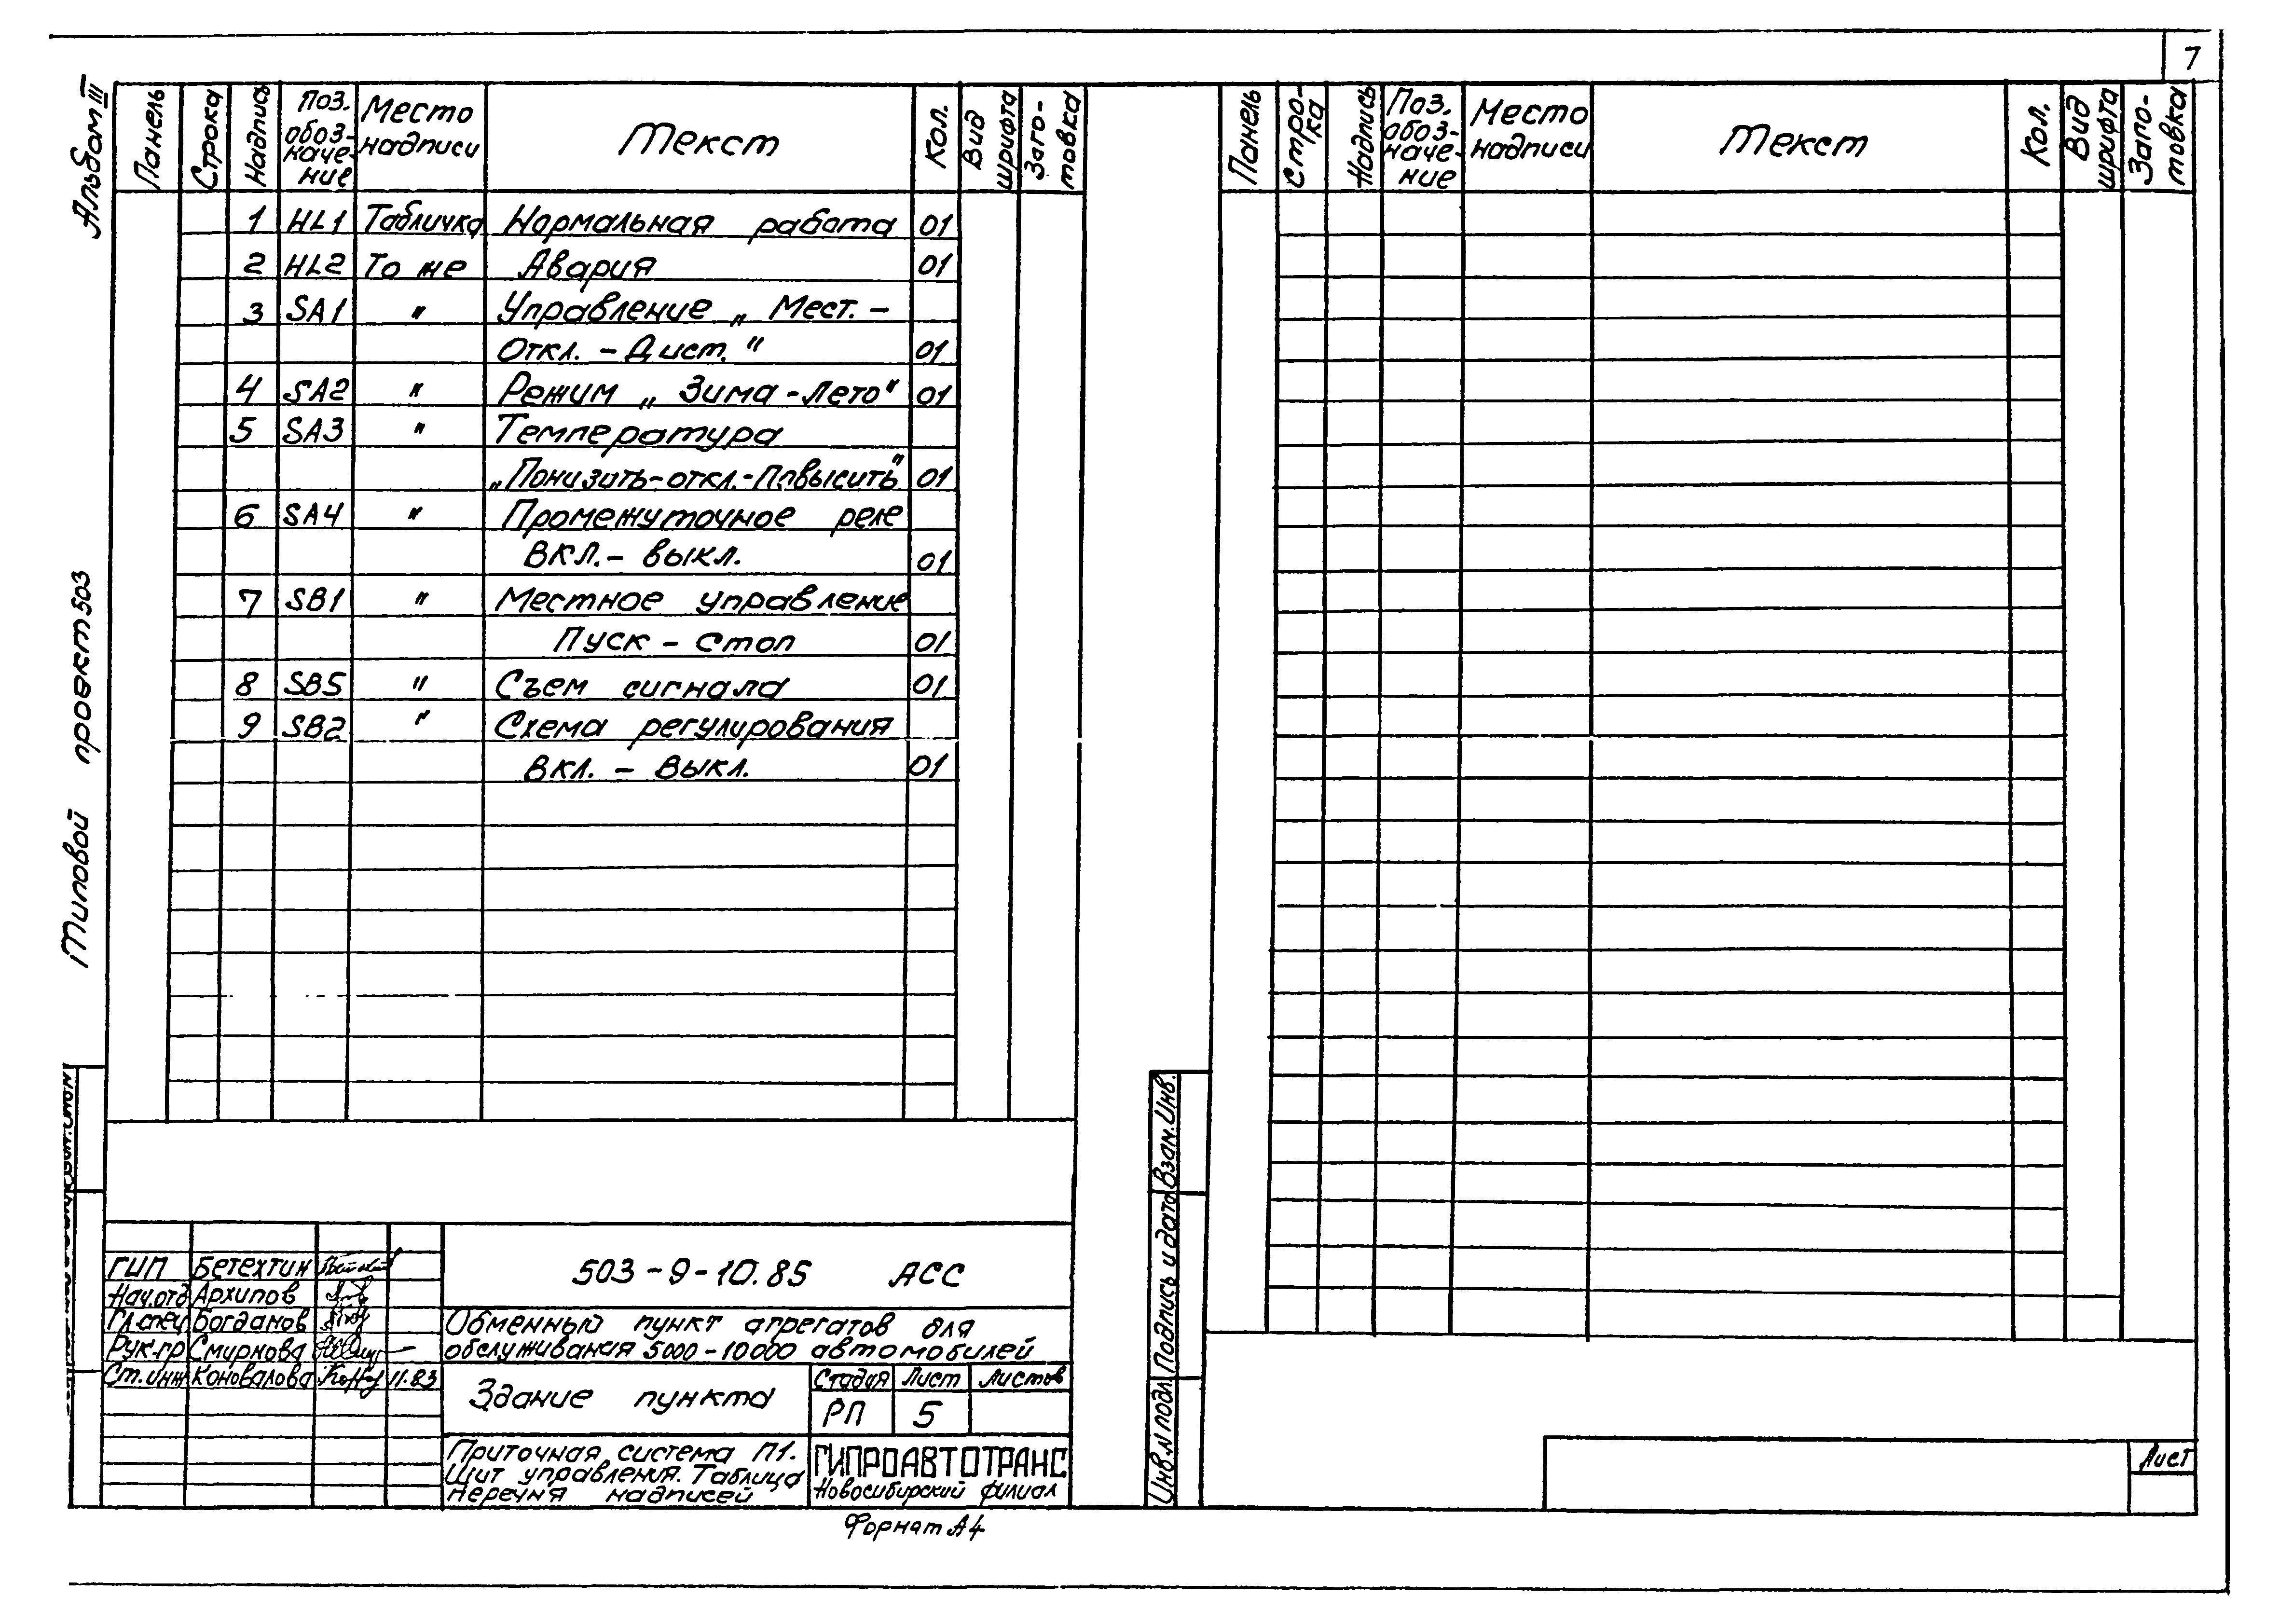 7
Альбом III
Типовой проект 503
Панель Строка Надпись Поз. обоз- наче- ние Место надписи Текст Кол. Вид шрифта Заго- товка
1 HL1 Табличка Нормальная работа 01
2 HL2 То же Авария 01
3 SA1 " Управление „ Мест. –
Откл. – Дист. " 01
4 SA2 " Режим „ Зима - Лето" 01
5 SA3 " Температура
„Понизить-откл.-Повысить" 01
6 SA4 " Промежуточное реле
Вкл. – выкл. 01
7 SB1 " Местное управление
Пуск – Стоп 01
8 SB5 " Съем сигнала 01
9 SB2 " Схема регулирования
Вкл. – Выкл. 01
ГИП Бетехтин
Нач.отд Архипов
Гл.спец Богданов
Рук.гр Смирнова
Ст.инж Коновалова 11.83
503-9-10.85 АСС
Обменный пункт агрегатов для
обслуживания 5000-10000 автомобилей
Здание пункта
Стадия Лист Листов
РП 5
Приточная система П1.
Щит управления. Таблица
перечня надписей
ГИПРОАВТОТРАНС
Новосибирский филиал
Формат А4
Панель Стро- ка Надпись Поз. обоз- наче- ние Место надписи Текст Кол. Вид шрифта Заго- товка
Инв.N подл. Подпись и дата Взам.Инв.
Лист